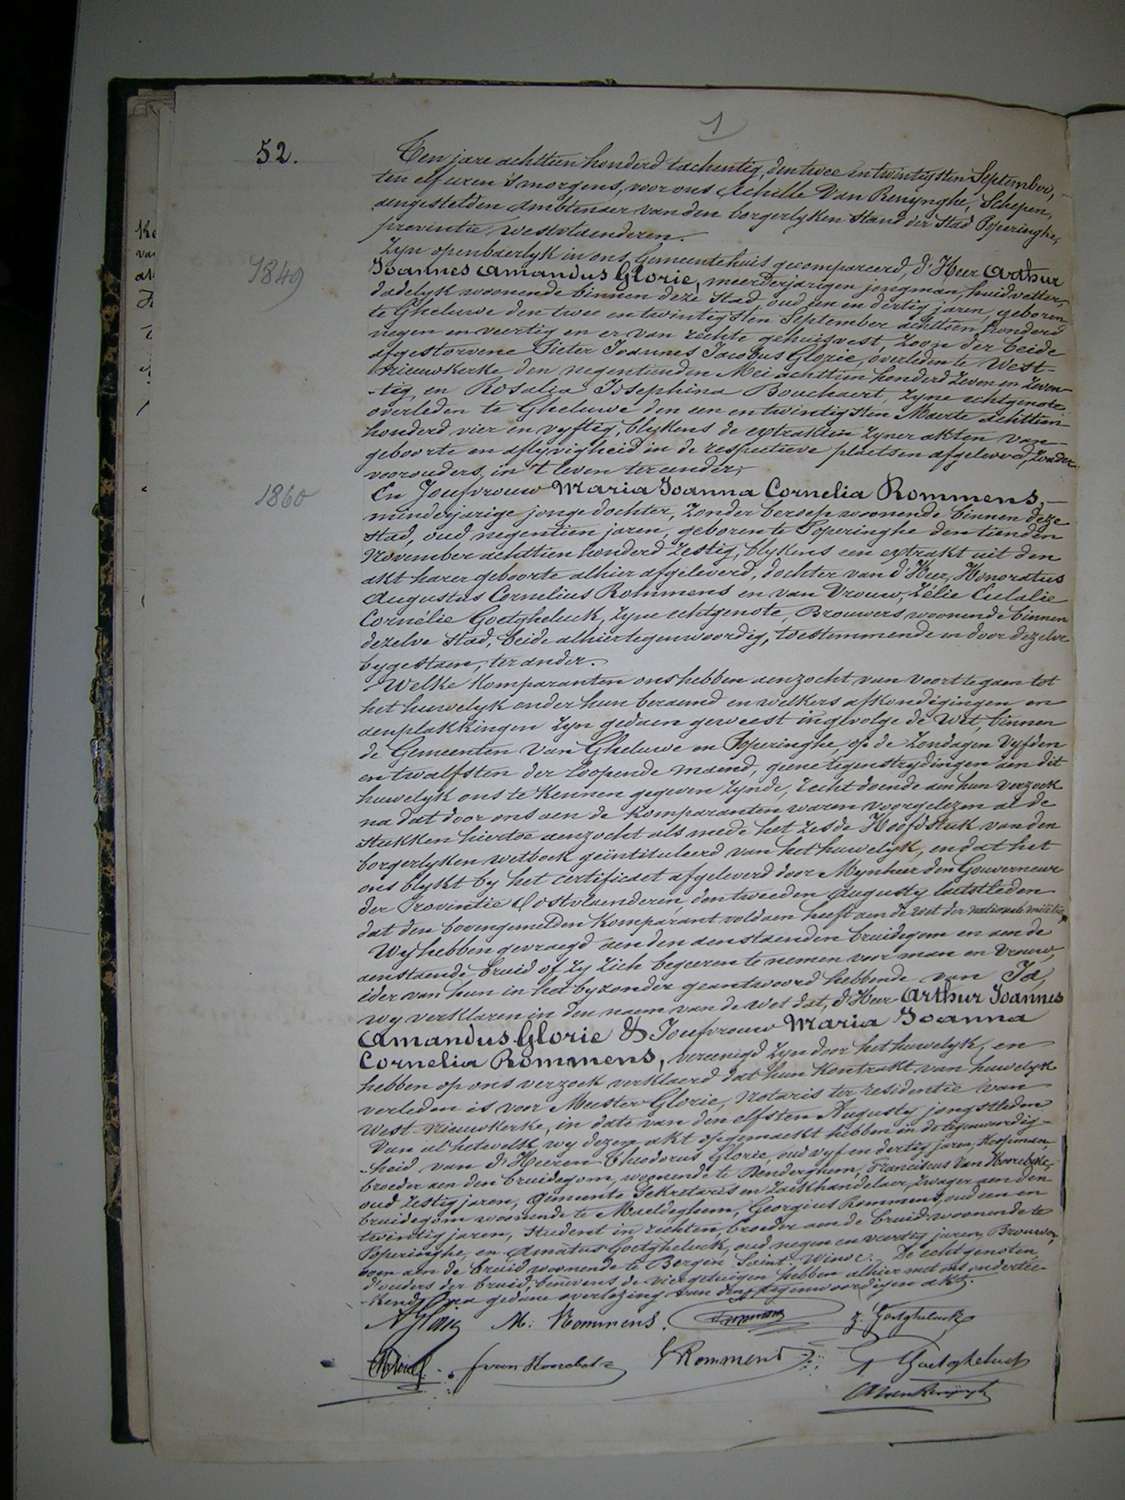 1
52.
Ten jare achttien honderd tachentig, den twee en twintigsten September,
ten elf uren 's morgens, voor ons Achille Van Renynghe, Schepen,
aengestelden Ambtenaer van den borgerlyken stand der Stad Poperinghe,
provintie Westvlaenderen.
Zyn openbaerlyk in ons gemeentehuis gecompareerd, d'Heer Arthur
1849
Joannes Amandus Glorie, meerderjarigen jongman, huidvetter,
dadelyk woonende binnen deze stad, oud een en dertig jaren, geboren
te Gheluwe den twee en twintigsten September achttien honderd
negen en veertig en er van rechte gehuisvest, Zoon der beide
afgestorvene Pieter Joannes Jacobus Glorie, overleden te West-
Nieuwkerke den negentienden Mei achttien honderd zeven en zeven-
tig, en Rosalia Josephina Bouchaert, zyne echtgenote,
overleden te Gheluwe den een en twintigsten Maerte achttien
honderd vier en vyftig, blykens de extrakten zyner akten van
geboorte en aflyvigheid in de respectieve plaetsen afgeleverd, zonder
voorouders in 't leven ter eender,
1860
En Joufvrouw Maria Joanna Cornelia Rommens,
minderjarige jonge dochter, zonder beroep woonende binnen deze
stad, oud negentien jaren, geboren te Poperinghe den tienden
November achttien honderd zestig, blykens een extrakt uit den
akt harer geboorte alhier afgeleverd, dochter van d'Heer Honoratus
Augustus Cornelius Rommens en van Vrouw Zélie Eulalie
Cornélie Goetgheluck, zyne echtgenote, Brouwers woonende binnen
dezelve stad, beide alhier tegenwoordig, toestemmende en door dezelve
bygestaen, ter ander.
Welke komparanten ons hebben aenzocht van voort te gaen tot
het huwelyk onder hun beraemd en welkers afkondigingen en
aenplakkingen zyn gedaen geweest ingevolge de Wet, binnen
de Gemeenten van Gheluwe en Poperinghe, op de Zondagen vyfden
en twalfsten der loopende maend, geene tegenstrydingen aen dit
huwelyk ons te kennen gegeven zynde, recht doende aen hun verzoek
na dat door ons aen de komparanten waren voorgelezen al de
stukken hiertoe aenzocht als mede het zesde Hoofdstuk van den
borgerlyken wetboek geïntituleerd van het huwelyk, en dat het
ons blykt by het certificaet afgeleverd door Mynheer den Gouverneur
der Provintie Oostvlaenderen, den tweeden Augusty laetstleden
dat den bovengemelden komparant voldaen heeft aen de wet der nationale militie,
Wy hebben gevraegd aen den aenstaenden bruidegom en aen de
aenstaende bruid of zy zich begeeren te nemen voor man en vrouw,
ider van hun in het byzonder geantwoord hebbende van Ja,
wy verklaren in den naem van de wet dat, d'Heer Arthur Joannes
Amandus Glorie & Joufvrouw Maria Joanna
Cornelia Rommens, vereenigd zyn door het huwelyk, en
hebben op ons verzoek verklaerd dat hun kontrakt van huwelyk
verleden is voor Meester Glorie, Notaris ter residentie van
West-Nieuwkerke, in date van den elfsten Augusty jongstleden
Van al hetwelk wy dezen akt opgemaekt hebben in de tegenwoordig-
heid van d'Heeren Theodorus Glorie, oud vyf en dertig jaren, koopman,
broeder aen den bruidegom, woonende te Denderghem, Franciscus Van Hoorebeke,
oud zestig jaren, Gemeente Sekretaris en zaekhandelaer, zwager aen den
bruidegom woonende te Maeldeghem, Georgius Rommens, oud een en
twintig jaren, student in rechten, broeder aen de bruid woonende te
Poperinghe, en Amatus Goetgheluck, oud negen en veertig jaren, Brouwer,
oom aen de bruid woonende te Bergen Saint Winoc. De echtgenoten,
d'ouders der bruid, benevens de vier getuigen hebben alhier met ons onderteekend
na gedane overlezing van den tegenwoordigen akt.
M. Rommens.
Z. Goetgheluck
G Rommens
A Goetgheluck
A Van Renynghe